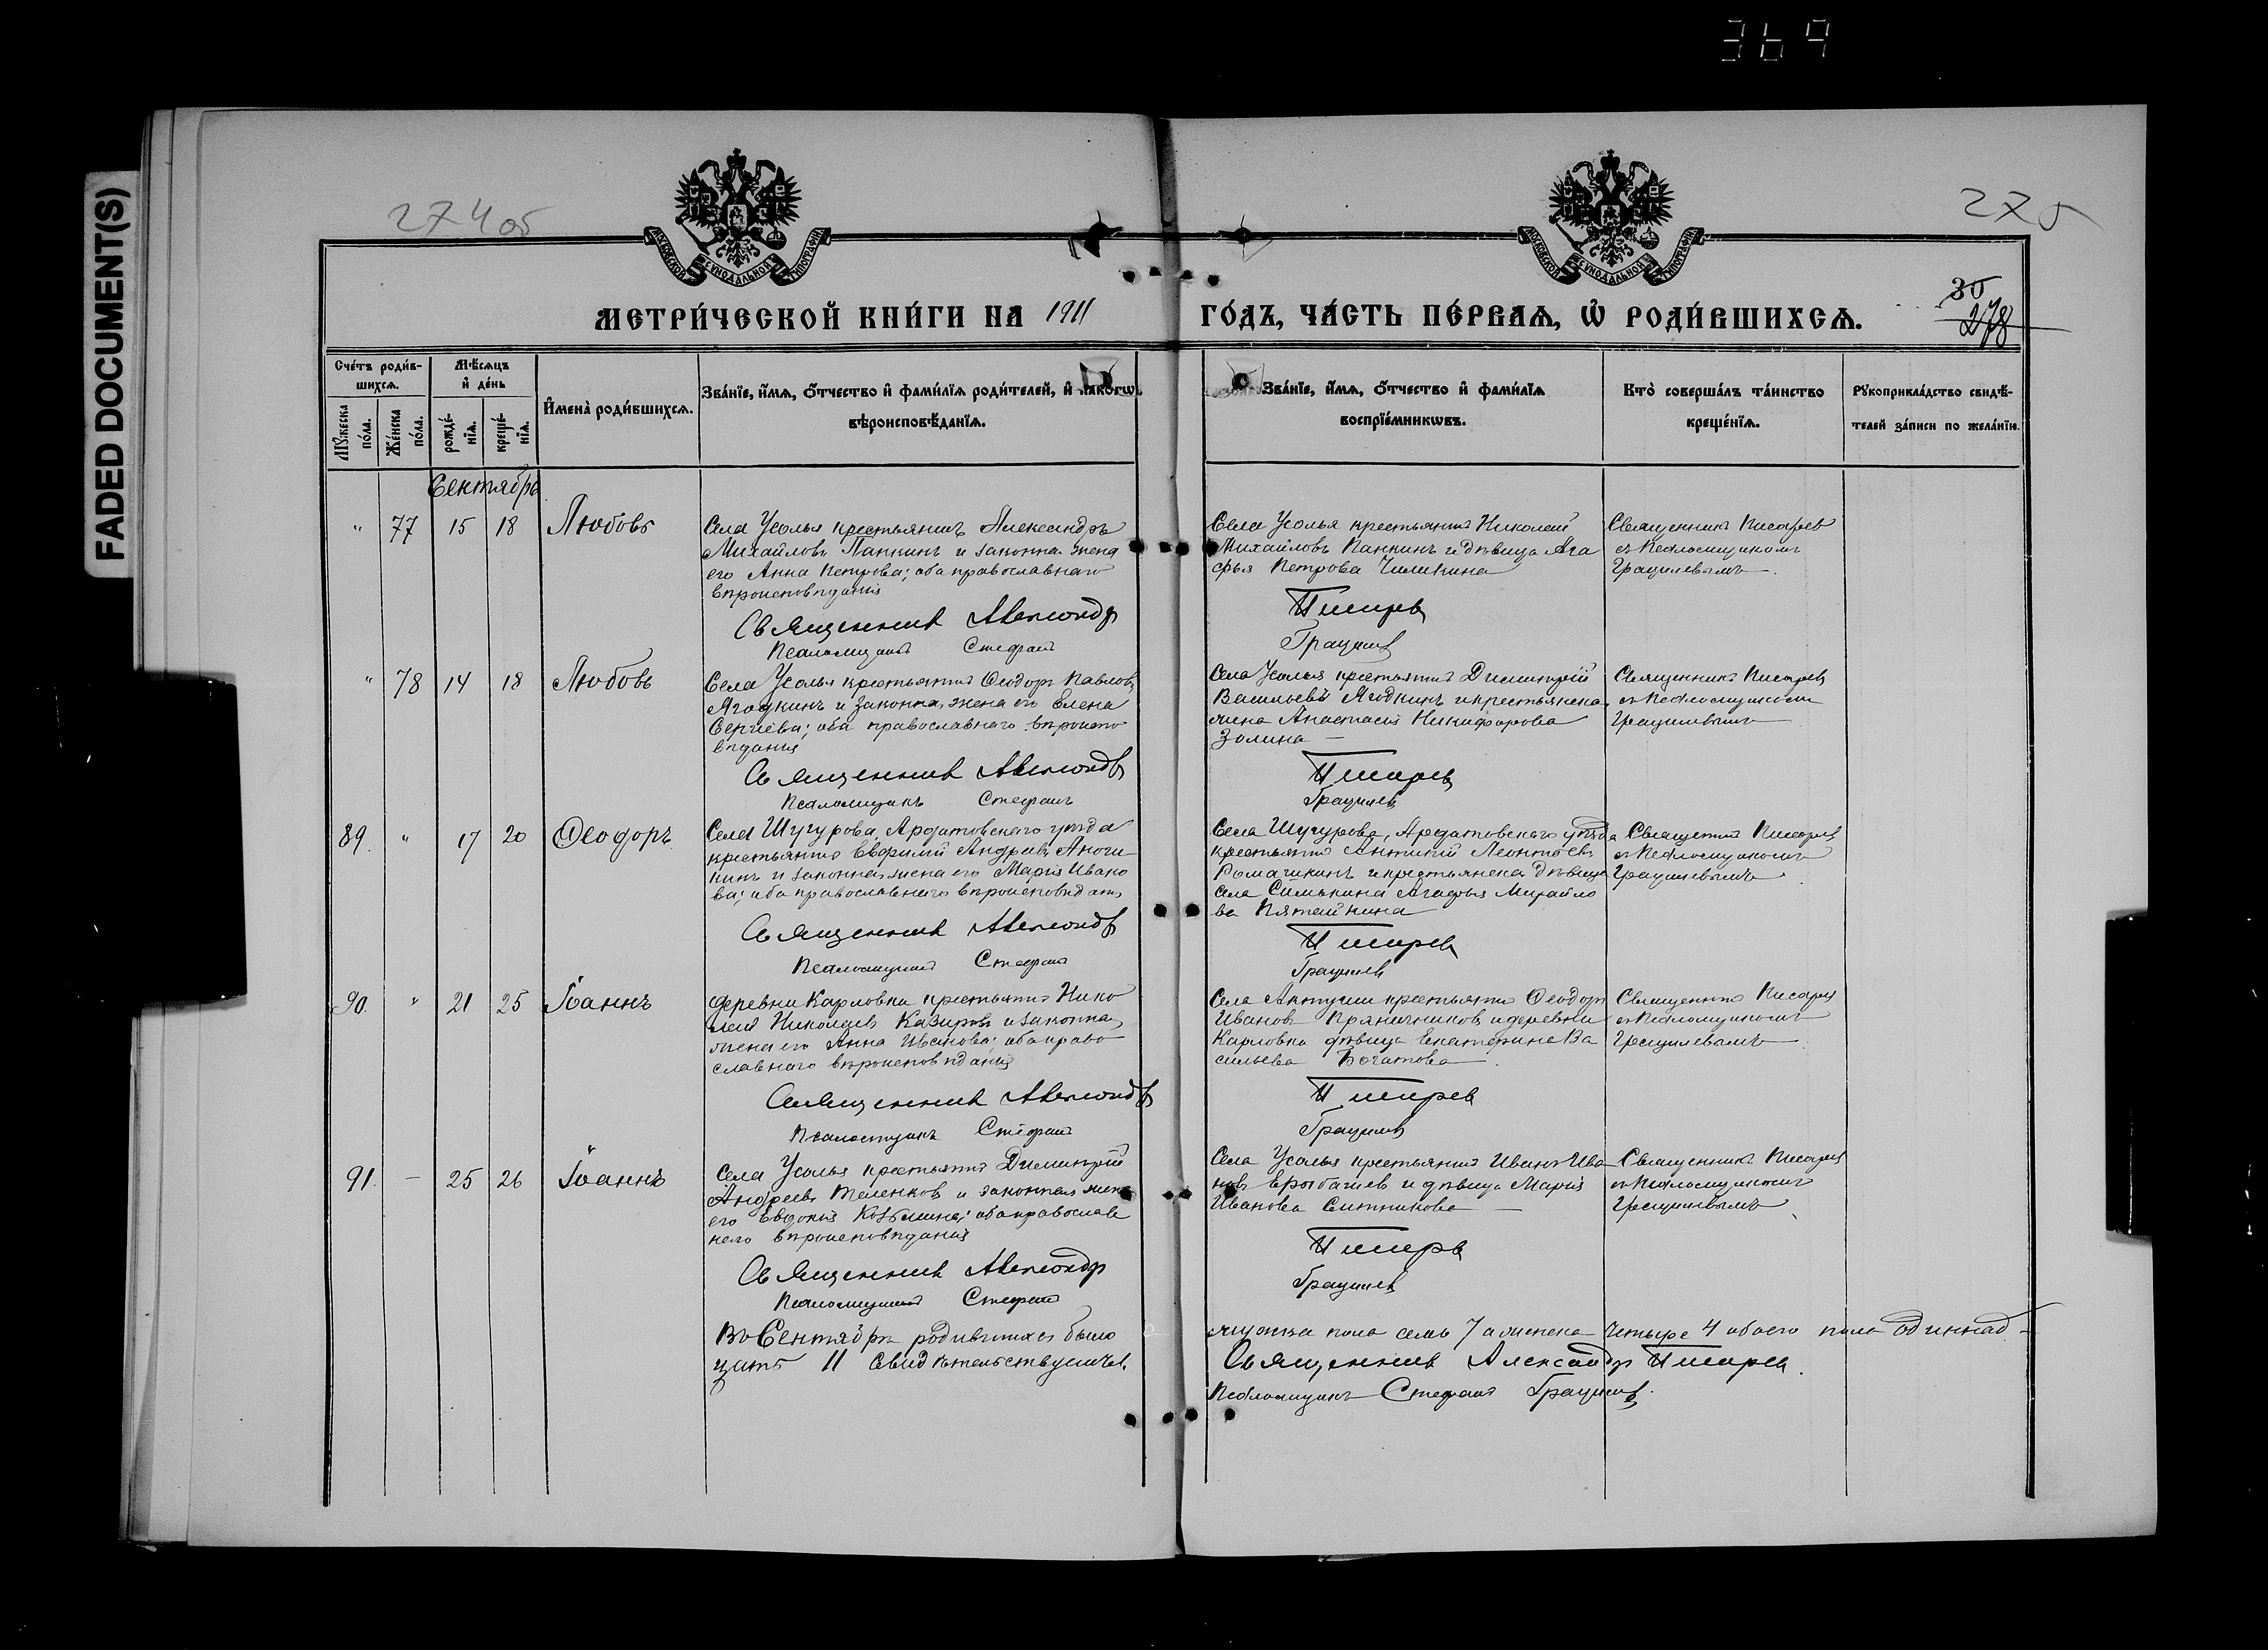 369
FADED DOCUMENT(S)
274 об
275
МОСКОВСКОЙ СѴНОДАЛЬНОЙ ТИПОГРАФІИ
МОСКОВСКОЙ СѴНОДАЛЬНОЙ ТИПОГРАФІИ
30
278
МЕТРИ́ЧЕСКОЙ КНИ́ГИ НА 1911
ГО́ДЪ, ЧА́СТЬ ПЕ́РВАЯ, Ѡ҆ РОДИ́ВШИХСЯ.
Сче́тъ роди́в-
шихся.
Мѣ́сяцъ
и҆ де́нь
Му́жеска
по́ла.
Же́нска
по́ла.
рожде́-
нїя.
креще́-
нїя.
И҆мена̀ роди́вшихся.
Зва́нїе, и҆́мя, ѻ҆́тчество и҆ фами́лїя роди́телей, и҆ како́гѡ
вѣроисповѣ́данїя.
Зва́нїе, и҆́мя, ѻ҆́тчество и҆ фами́лїя
воспрїе́мникѡвъ.
Кто̀ соверша́лъ та́инство
креще́нїя.
Рукоприкла́дство свидѣ́-
телей за́писи по жела́нїю.
Сентябрь
" 77 15 18 Любовь
Села Усолья крестьянинъ Александръ
Михайловъ Панкинъ и законная жена
его Анна Петрова; оба православнаго
вѣроисповѣданія
Священник Александр
Псаломщикъ Стефанъ
Села Усолья крестьянинъ Николай
Михайловъ Панкинъ и дѣвица Ага
фья Петрова Чиликина
Писарев
Грацилев
Священникъ Писарев
съ Псаломщикомъ
Грацилевымъ
" 78 14 18 Любовь
Села Усолья крестьянинъ Ѳеодоръ Павловъ
Ягодкинъ и законная жена его Елена
Сергіева; оба православнаго вѣроиспо
вѣданія
Священник Александр
Псаломщикъ Стефанъ
Села Усолья крестьянинъ Димитрій
Васильевъ Ягодкинъ и крестьянска
жена Анастасія Никифорова
Золина
Писарев
Грацилев
Священникъ Писарев
съ Псаломщикомъ
Грацилевымъ
89. " 17 20 Ѳеодоръ
Села Шугурова, Ардатовскаго уѣзда
крестьянинъ Евфимій Андреевъ Аноч
кинъ и законная жена его Марія Ивано
ва; оба православнаго вѣроисповѣданія
Священник Александр
Псаломщикъ Стефанъ
Села Шугурова, Ардатовскаго уѣзда
крестьянинъ Антипій Леонтьевъ
Ромашкинъ и крестьянска дѣвица
села Симкина Агафья Михайло
ва Пятайкина
Писарев
Грацилев
Священникъ Писарев
съ Псаломщикомъ
Грацилевымъ
90. " 21 25 Іоаннъ
деревни Карловка крестьянинъ Нико
лай Николаевъ и законная
жена его Анна Иванова; оба право
славнаго вѣроисповѣданія
Священник Александр
Псаломщикъ Стефанъ
Села Актуши крестьянинъ Ѳеодоръ
Ивановъ Пряничников и деревни
Карловка дѣвица Екатерина Ва
сильева Богатова
Писарев
Грацилев
Священникъ Писарев
съ Псаломщикомъ
Грацилевымъ
91. — 25 26 Іоаннъ
Села Усолья крестьянинъ Димитрій
Андреевъ Теленков и законная жена
его Евдокія Козьмина; оба православ
наго вѣроисповѣданія
Священник Александр
Псаломщикъ Стефанъ
Села Усолья крестьянинъ Иванъ Ива
новъ и дѣвица Марія
Иванова Ситникова
Писарев
Грацилев
Священникъ Писарев
съ Псаломщикомъ
Грацилевымъ
Въ Сентябрѣ родившихся было мужска пола семь 7 а женска четыре 4 обоего пола одиннад-
цать 11 Свидѣтельствуемъ. Священник Александр Писарев.
Псаломщикъ Стефанъ Грацилев.